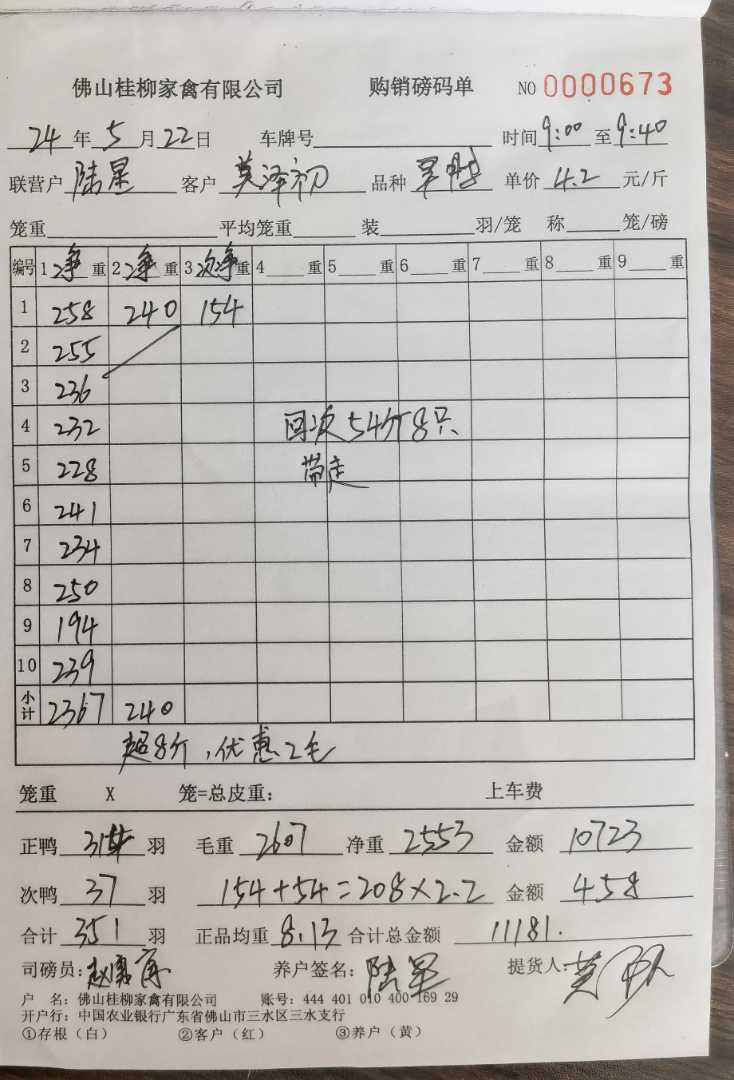 佛山桂柳家禽有限公司 购销磅码单 NO 0000673
24年5月22日 车牌号 时间9:00至9:40
联营户 陆星 客户 莫泽初 品种 单价 4.2 元/斤
笼重 平均笼重 装 羽/笼 称 笼/磅
编号 1 净 重 2 净 重 3 次净 重 4 重 5 重 6 重 7 重 8 重 9 重
1 258 240 154
2 255
3 236
4 232 回次54斤8只
5 228 带走
6 241
7 234
8 250
9 194
10 239
小计 2367 240
超8斤,优惠2毛
笼重 X 笼=总皮重: 上车费
正鸭 314 羽 毛重 2607 净重 2553 金额 10723
次鸭 37 羽 154+54=208×2.2 金额 458
合计 351 羽 正品均重 8.13 合计总金额 11181.
司磅员: 养户签名: 陆星 提货人:莫
户 名: 佛山桂柳家禽有限公司 账号: 444 401 010 400 169 29
开户行: 中国农业银行广东省佛山市三水区三水支行
①存根(白) ②客户(红) ③养户(黄)